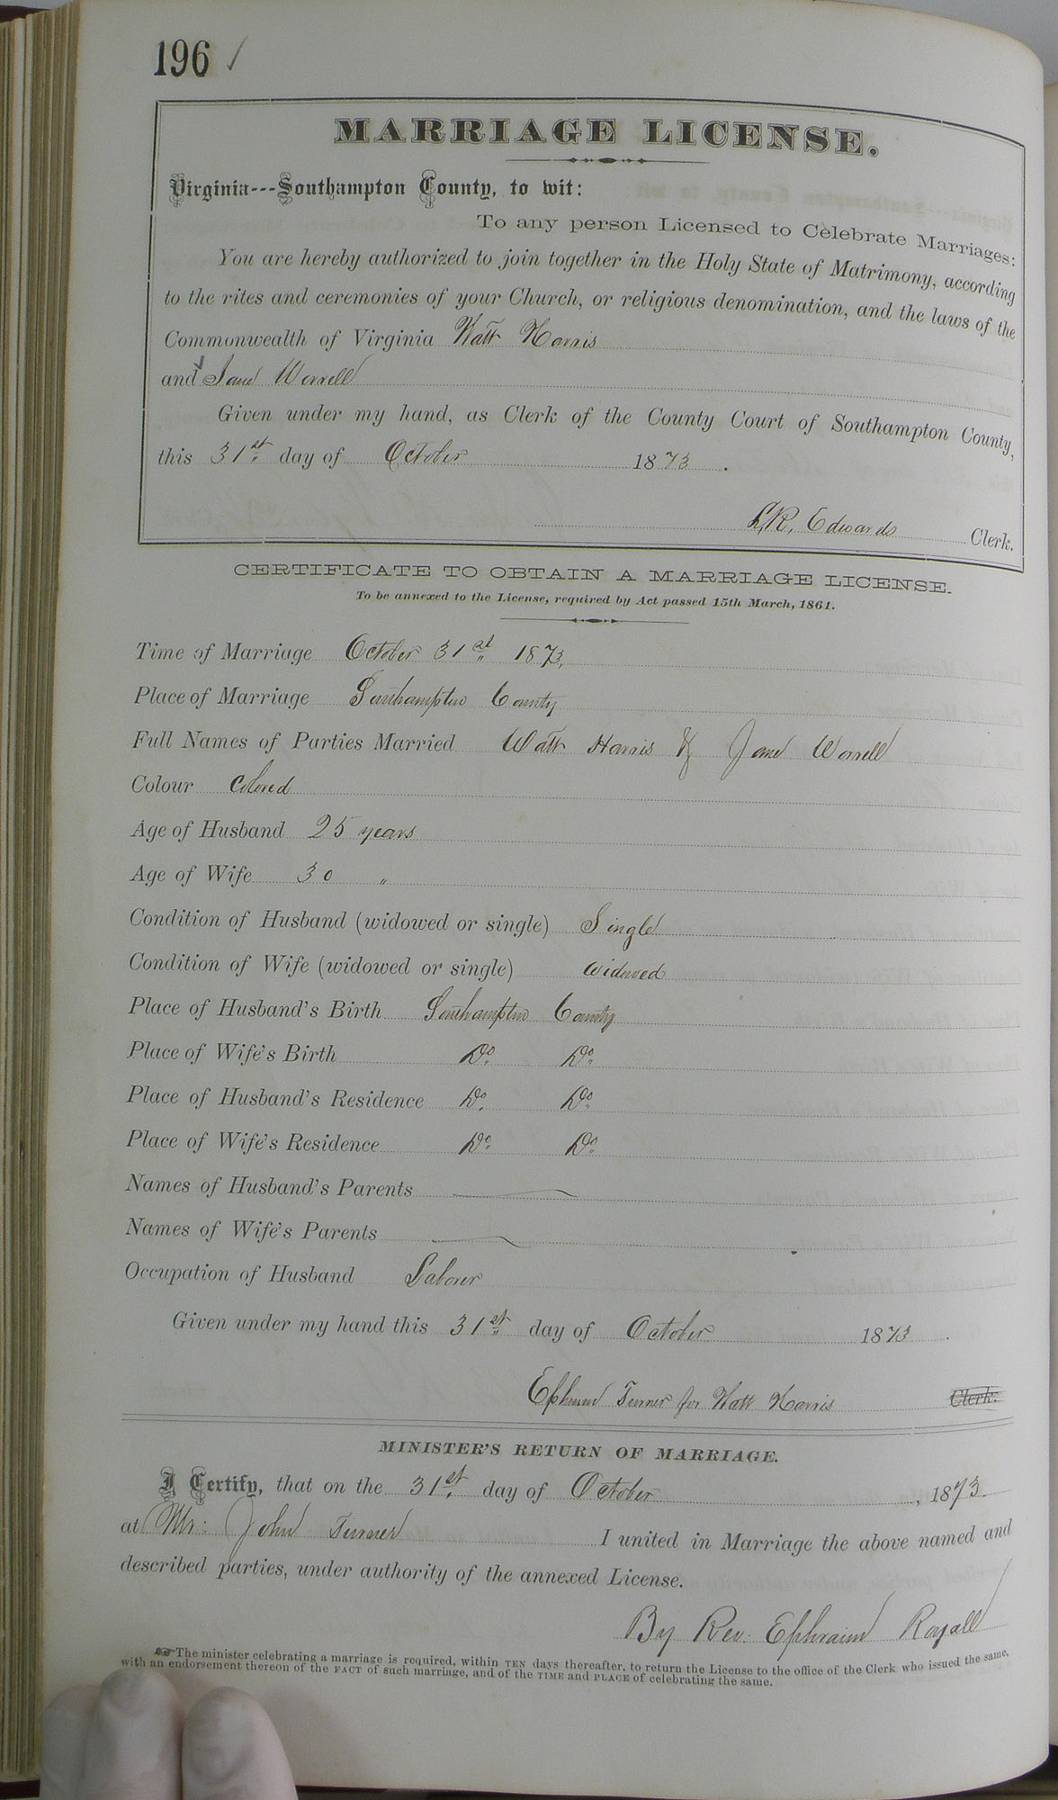 196 ✓
MARRIAGE LICENSE.
Virginia---Southampton County, to wit:
To any person Licensed to Celebrate Marriages:
You are hereby authorized to join together in the Holy State of Matrimony, according
to the rites and ceremonies of your Church, or religious denomination, and the laws of the
Commonwealth of Virginia Watt Harris
and Jane Worrell
Given under my hand, as Clerk of the County Court of Southampton County,
this 31st day of October 1873.
L.R. Edwards Clerk.
CERTIFICATE TO OBTAIN A MARRIAGE LICENSE.
To be annexed to the License, required by Act passed 15th March, 1861.
Time of Marriage October 31st 1873,
Place of Marriage Southampton County
Full Names of Parties Married Watt Harris & Jane Worrell
Colour Colored
Age of Husband 25 years
Age of Wife 30 "
Condition of Husband (widowed or single) Single
Condition of Wife (widowed or single) widowed
Place of Husband's Birth Southampton County
Place of Wife's Birth Do. Do.
Place of Husband's Residence Do. Do.
Place of Wife's Residence Do. Do.
Names of Husband's Parents
Names of Wife's Parents
Occupation of Husband Laborer
Given under my hand this 31st day of October 1873.
Ephraim Turner for Watt Harris Clerk.
MINISTER'S RETURN OF MARRIAGE.
I Certify, that on the 31st day of October, 1873.
at Mr: John Turner I united in Marriage the above named and
described parties, under authority of the annexed License.
By Rev. Ephraim Royall
The minister celebrating a marriage is required, within TEN days thereafter, to return the License to the office of the Clerk who issued the same,
with an endorsement thereon of the FACT of such marriage, and of the TIME and PLACE of celebrating the same.